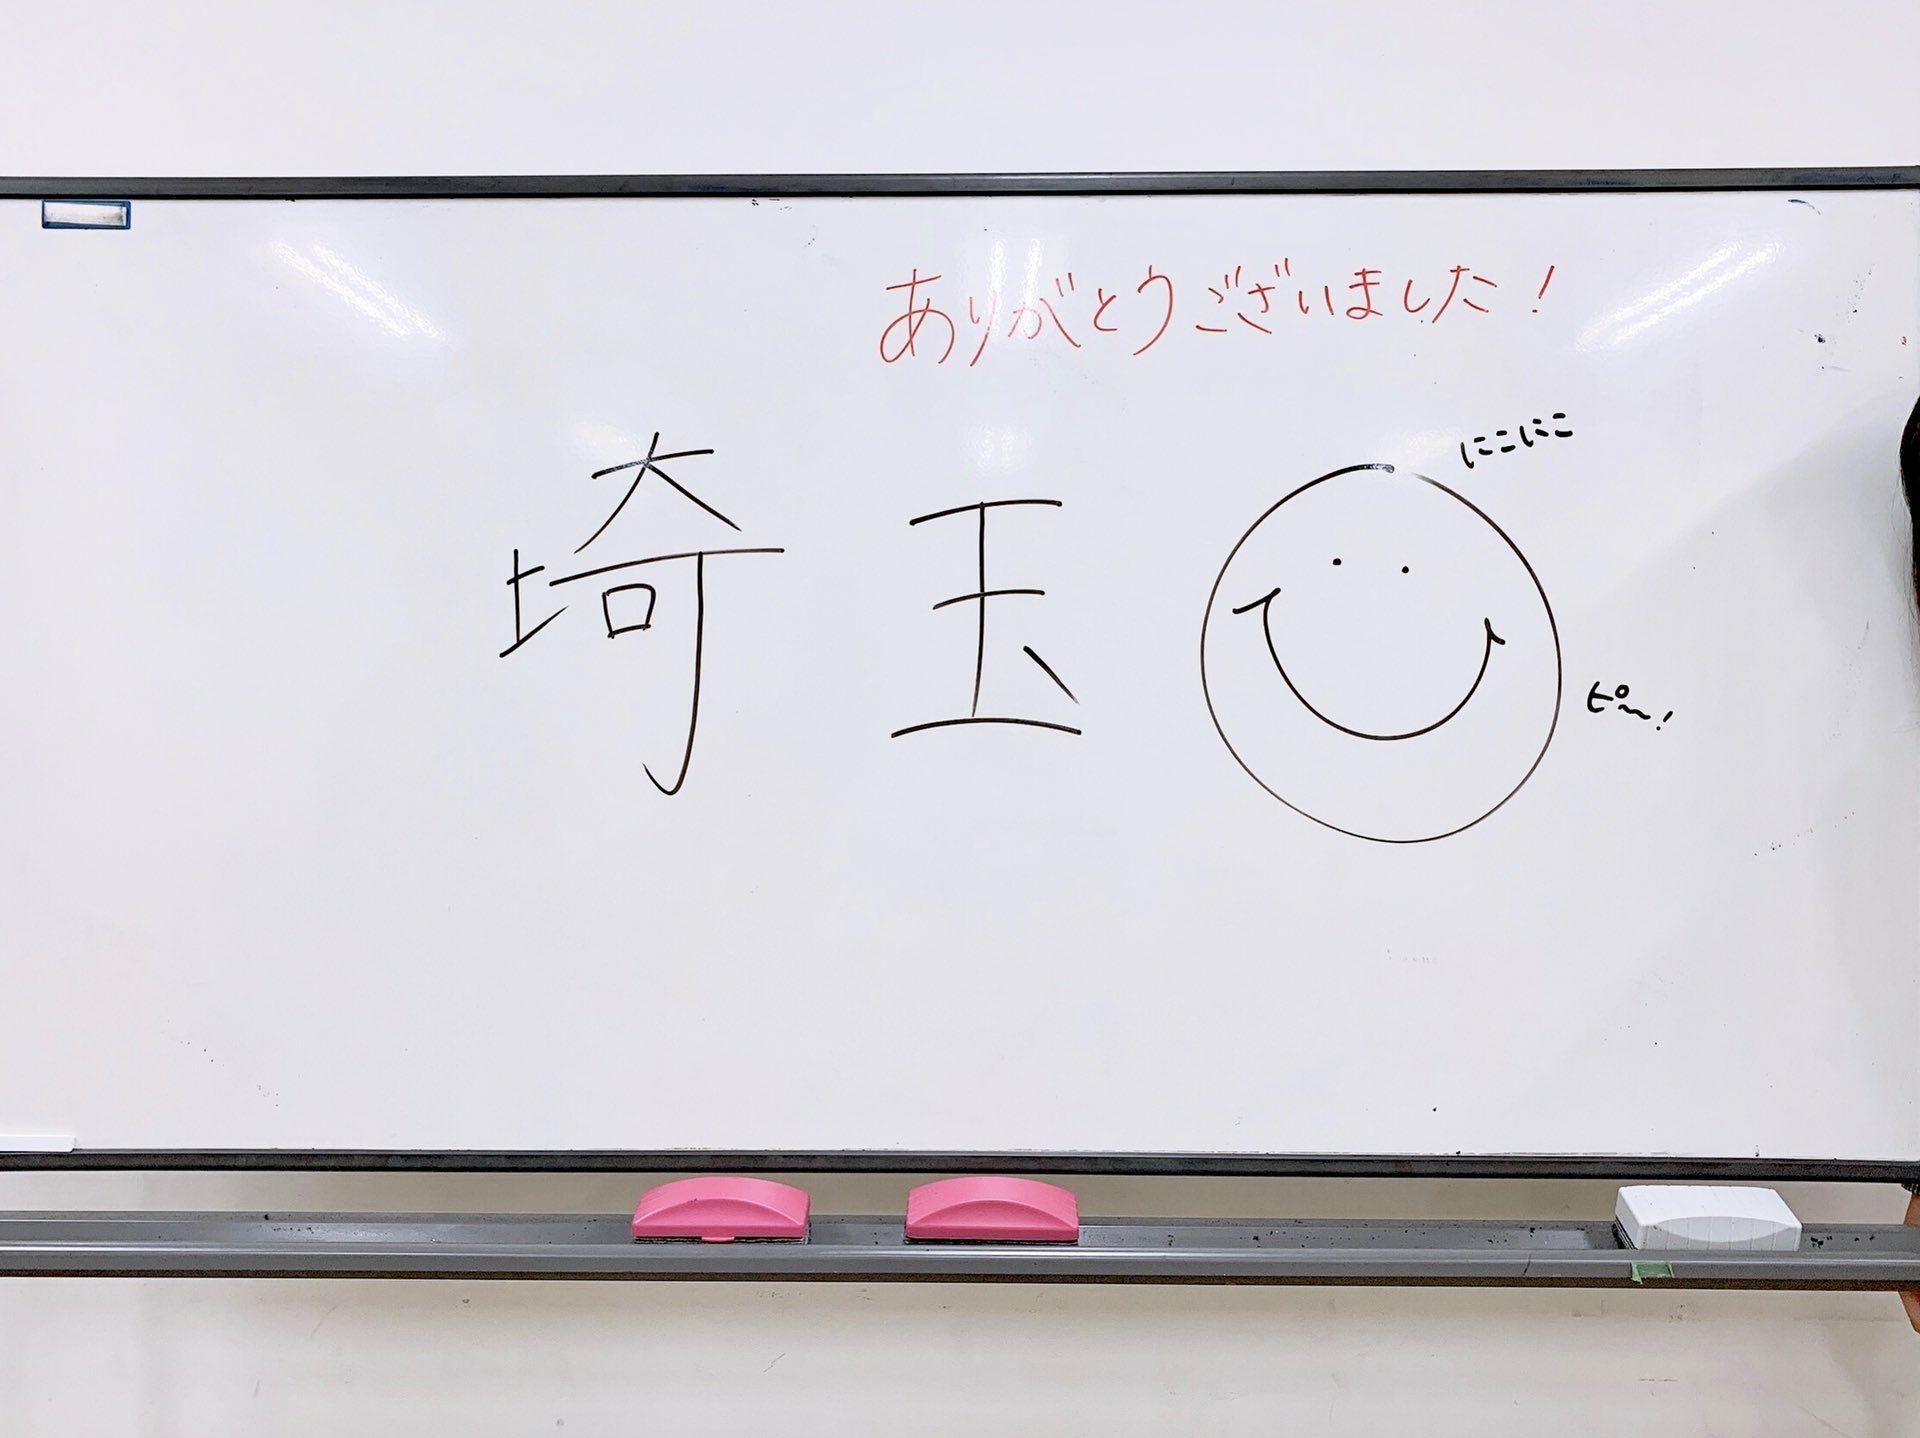 ありがとうございました！
にこにこ
埼玉
ピ〜！